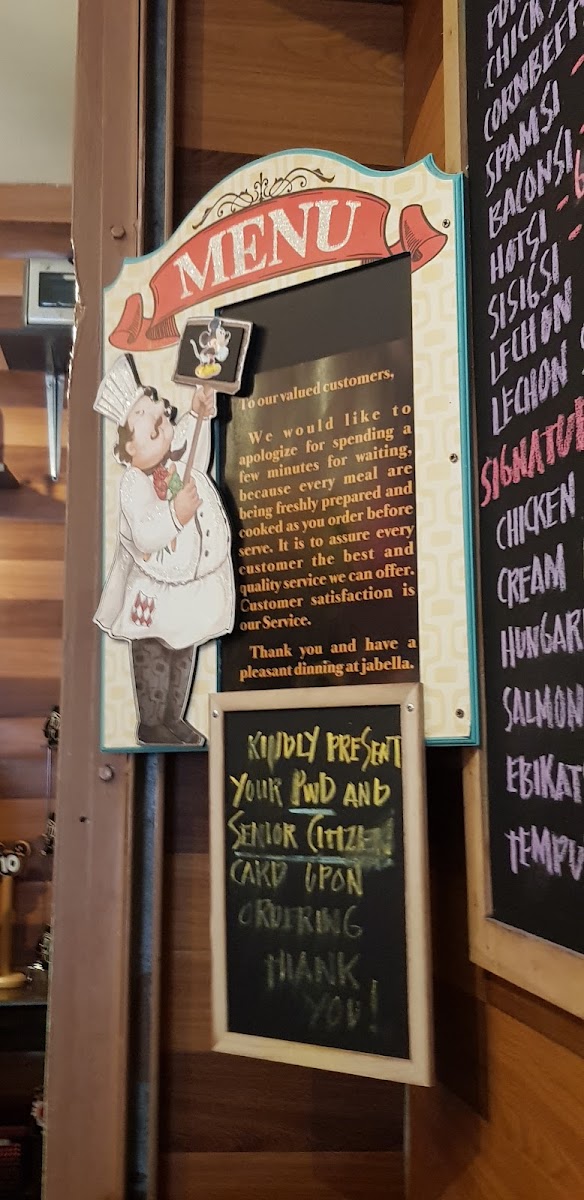 MENU
To our valued customers,
We would like to
apologize for spending a
few minutes for waiting,
because every meal are
being freshly prepared and
cooked as you order before
serve. It is to assure every
customer the best and
quality service we can offer.
Customer satisfaction is
our Service.
Thank you and have a
pleasant dinning at jabella.
KINDLY PRESENT
YOUR PWD AND
SENIOR CITIZEN
CARD UPON
ORDERING
THANK
YOU!
CORNBEEF
SPAMSI
BACONSI
HOTSI
SISIGSI
LECHON
LECHON
CHICKEN
CREAM
SALMON
10